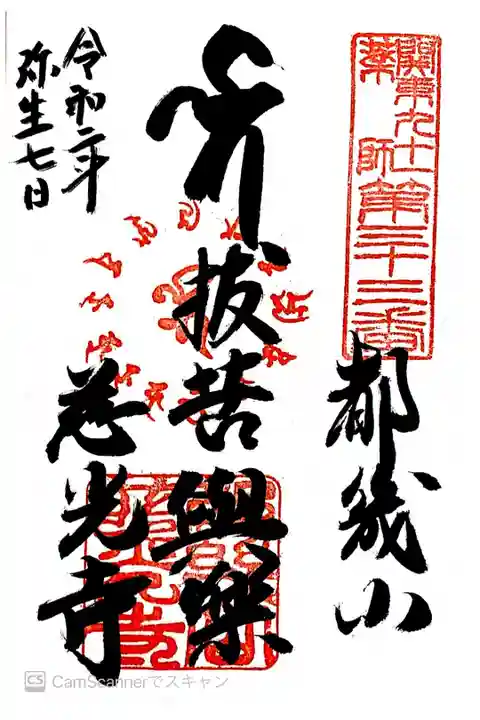 関東九十
薬師第三十二番
都幾山
抜苦與楽
慈光寺
令和二年
弥生七日
CS CamScannerでスキャン